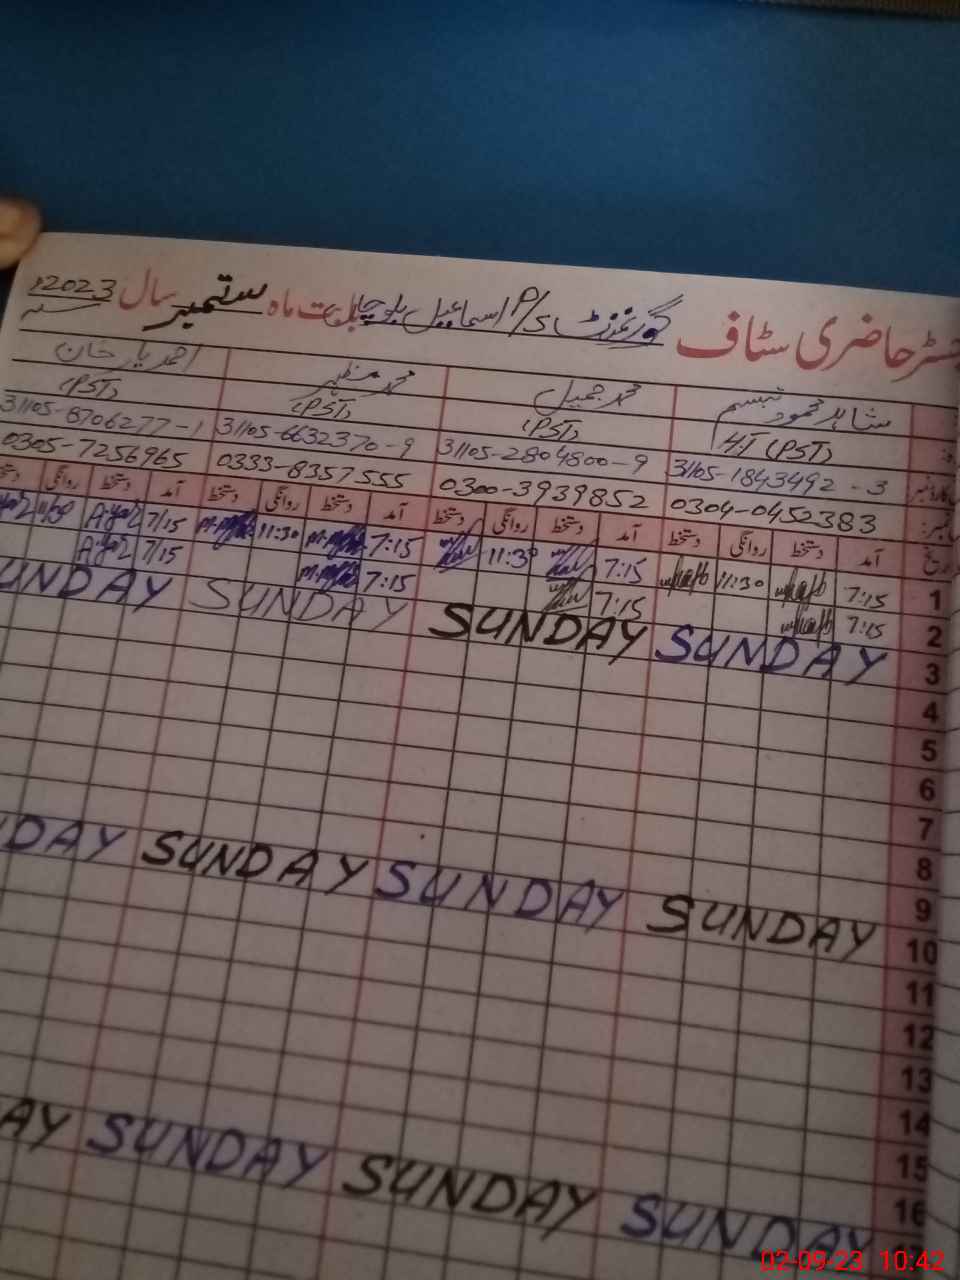 رجسٹر حاضری سٹاف گورنمنٹ P/S اسماعیل بلوچاں بابت ماہ ستمبر سال 2023ء
شاہد محمود تبسم محمد جمیل محمد مظہر احمد یار خان
HT (PST) (PST) (PST) (PST)
31105-1843492-3 31105-2804800-9 31105-6632370-9 31105-8706277-1
0304-0452383 0300-3939852 0333-8357555 0305-7256965
آمد دستخط روانگی دستخط آمد دستخط روانگی دستخط آمد دستخط روانگی دستخط آمد دستخط روانگی
1 7:15 11:30 7:15 11:30 7:15 11:30 7/15 A.yar
2 7:15 7:15 7:15 7/15 A.yar
3 SUNDAY SUNDAY SUNDAY SUNDAY
4
5
6
7
8
9
10 SUNDAY SUNDAY SUNDAY DAY
11
12
13
14
15
16
17 SUNDAY SUNDAY SUNDAY AY
02-09-23 10:42